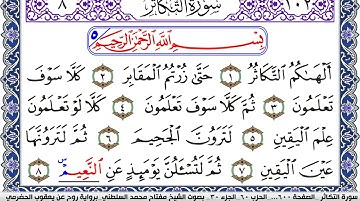 ٨ سُورَةُ التَّكَاثُرِ ١٠٢
بِسْمِ اللَّهِ الرَّحْمَٰنِ الرَّحِيمِ
أَلْهَاكُمُ التَّكَاثُرُ ١ حَتَّى زُرْتُمُ الْمَقَابِرَ ٢ كَلَّا سَوْفَ
تَعْلَمُونَ ٣ ثُمَّ كَلَّا سَوْفَ تَعْلَمُونَ ٤ كَلَّا لَوْ تَعْلَمُونَ
عِلْمَ الْيَقِينِ ٥ لَتَرَوُنَّ الْجَحِيمَ ٦ ثُمَّ لَتَرَوُنَّهَا
عَيْنَ الْيَقِينِ ٧ ثُمَّ لَتُسْأَلُنَّ يَوْمَئِذٍ عَنِ النَّعِيمِ ٨
سورة التكاثر الصفحة ٦٠٠... الحزب ٦٠ الجزء ٣٠. بصوت الشيخ مفتاح محمد السلطني برواية روح عن يعقوب الحضرمي